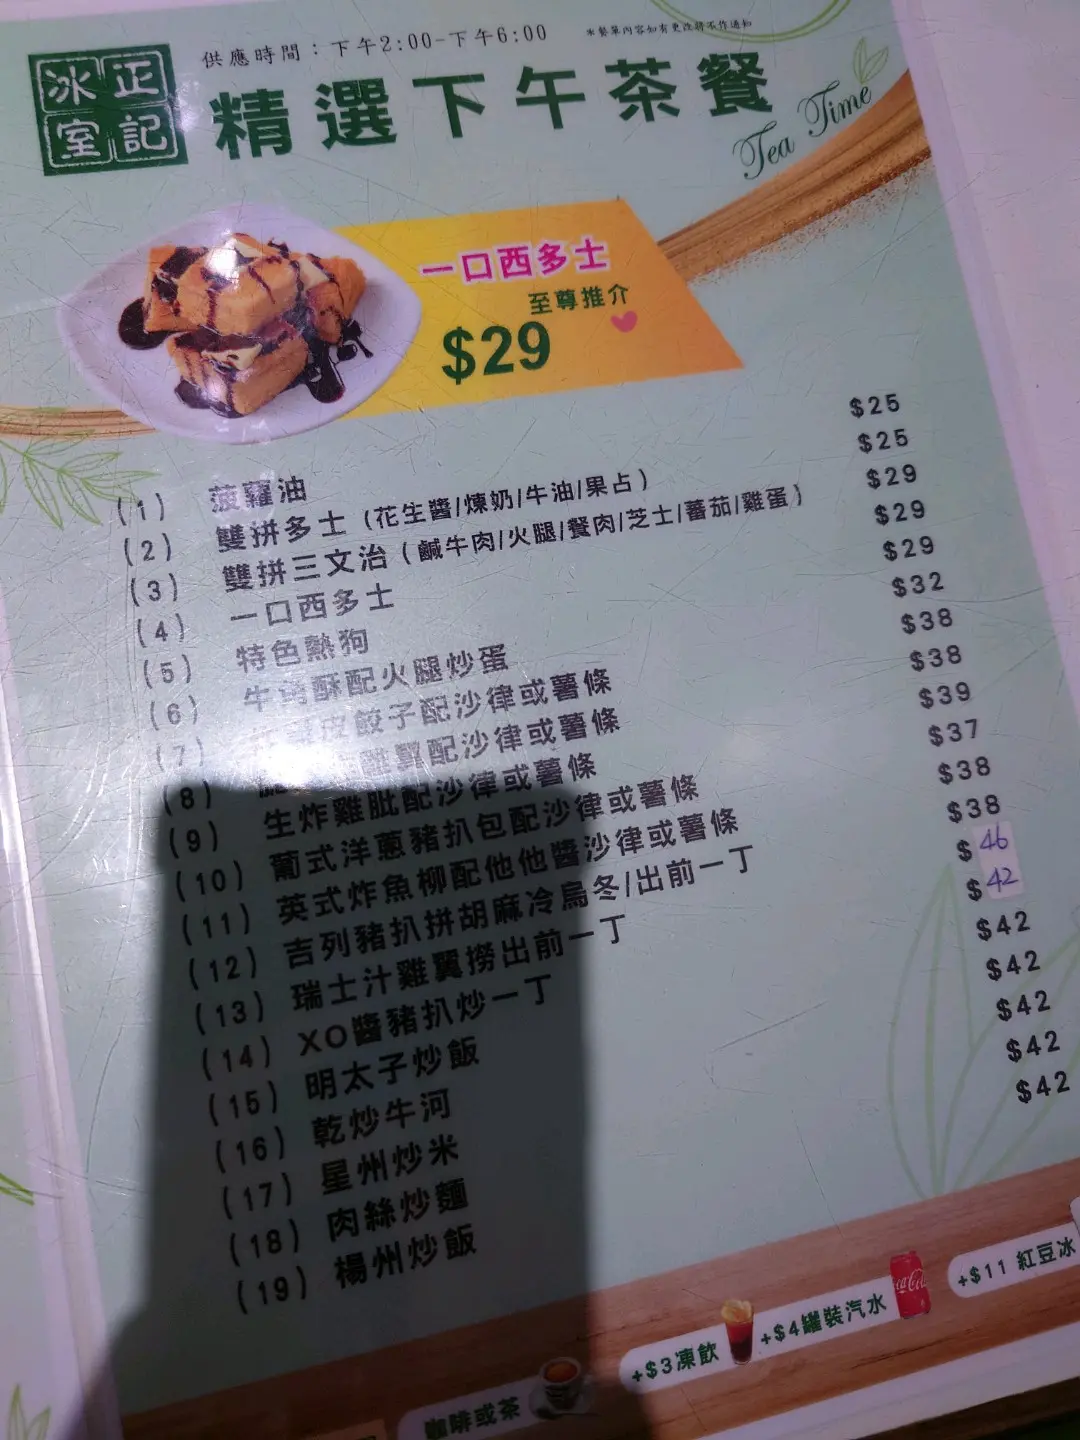 正記
冰室
供應時間：下午2:00-下午6:00
*餐單內容如有更改將不作通知
精選下午茶餐
Tea Time
一口西多士
至尊推介
$29
(1) 菠蘿油 $25
(2) 雙拼多士（花生醬/煉奶/牛油/果占） $25
(3) 雙拼三文治（鹹牛肉/火腿/餐肉/芝士/蕃茄/雞蛋） $29
(4) 一口西多士 $29
(5) 特色熱狗 $29
(6) 牛角酥配火腿炒蛋 $32
(7) 皮餃子配沙律或薯條 $38
(8) 雞翼配沙律或薯條 $38
(9) 生炸雞肶配沙律或薯條 $39
(10) 葡式洋蔥豬扒包配沙律或薯條 $37
(11) 英式炸魚柳配他他醬沙律或薯條 $38
(12) 吉列豬扒拼胡麻冷烏冬/出前一丁 $38
(13) 瑞士汁雞翼撈出前一丁 $46
(14) XO醬豬扒炒一丁 $42
(15) 明太子炒飯 $42
(16) 乾炒牛河 $42
(17) 星州炒米 $42
(18) 肉絲炒麵 $42
(19) 楊州炒飯 $42
咖啡或茶
+$3凍飲
+$4罐裝汽水
+$11 紅豆冰